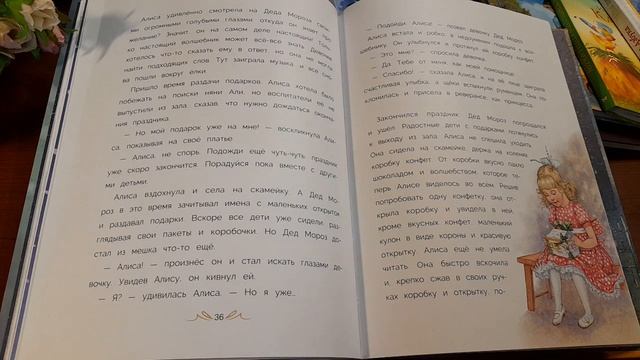 Алиса удивлённо смотрела на Деда Мороза свои-
ми огромными голубыми глазами: откуда он знает про
желание? Значит, он на самом деле настоящий! Толь-
ко настоящий волшебник может всё-всё знать. Девочке
хотелось что-то сказать ему в ответ, но она не могла
найти подходящих слов. Тут заиграла музыка, и все сно-
ва пошли вокруг ёлки.
Пришло время раздачи подарков. Алиса хотела было
побежать на поиски няни Али, но воспитатели её не
выпустили из зала, сказав, что нужно дождаться оконча-
ния праздника.
— Но мой подарок уже на мне! — воскликнула Али-
са, показывая на своё платье.
— Алиса, не спорь. Подожди ещё чуть-чуть, праздник
уже скоро закончится. Порадуйся пока вместе с други-
ми детьми.
Алиса вздохнула и села на скамейку. А Дед Мо-
роз в это время зачитывал имена с маленьких открыток
и раздавал подарки. Вскоре все дети уже сидели, раз-
глядывая свои пакеты и коробочки. Но Дед Мороз до-
стал из мешка что-то ещё.
— Алиса! — произнёс он и стал искать глазами де-
вочку. Увидев Алису, он кивнул ей.
— Я? — удивилась Алиса. — Но я уже...
36
— Подойди, Алиса! — позвал девочку Дед Мороз.
Алиса встала и робко, в недоумении, подошла к вол-
шебнику. Он улыбнулся и протянул ей коробку конфет.
— Это мне? — спросила девочка.
— Да. Тебе от меня, как моей помощнице.
— Спасибо! — сказала Алиса, и на её лице заиграла
счастливая улыбка, а щёки вспыхнули румянцем. Она по-
клонилась и присела в реверансе, как принцесса.
Закончился праздник. Дед Мороз попрощался
и ушёл. Радостные дети с подарками потянулись
к выходу из зала. Алиса не спешила уходить.
Она сидела на скамейке, держа на коленях
коробку конфет. От коробки вкусно пахло
шоколадом и волшебством, которое те-
перь Алисе виделось во всём. Решив
попробовать одну конфету, она от-
крыла коробку и увидела в ней,
кроме вкусных конфет, маленький
кулон в виде короны и красивую
открытку. Алиса ещё не умела
читать. Она быстро вскочила
и, крепко сжав в своих руч-
ках коробку и открытку, по-